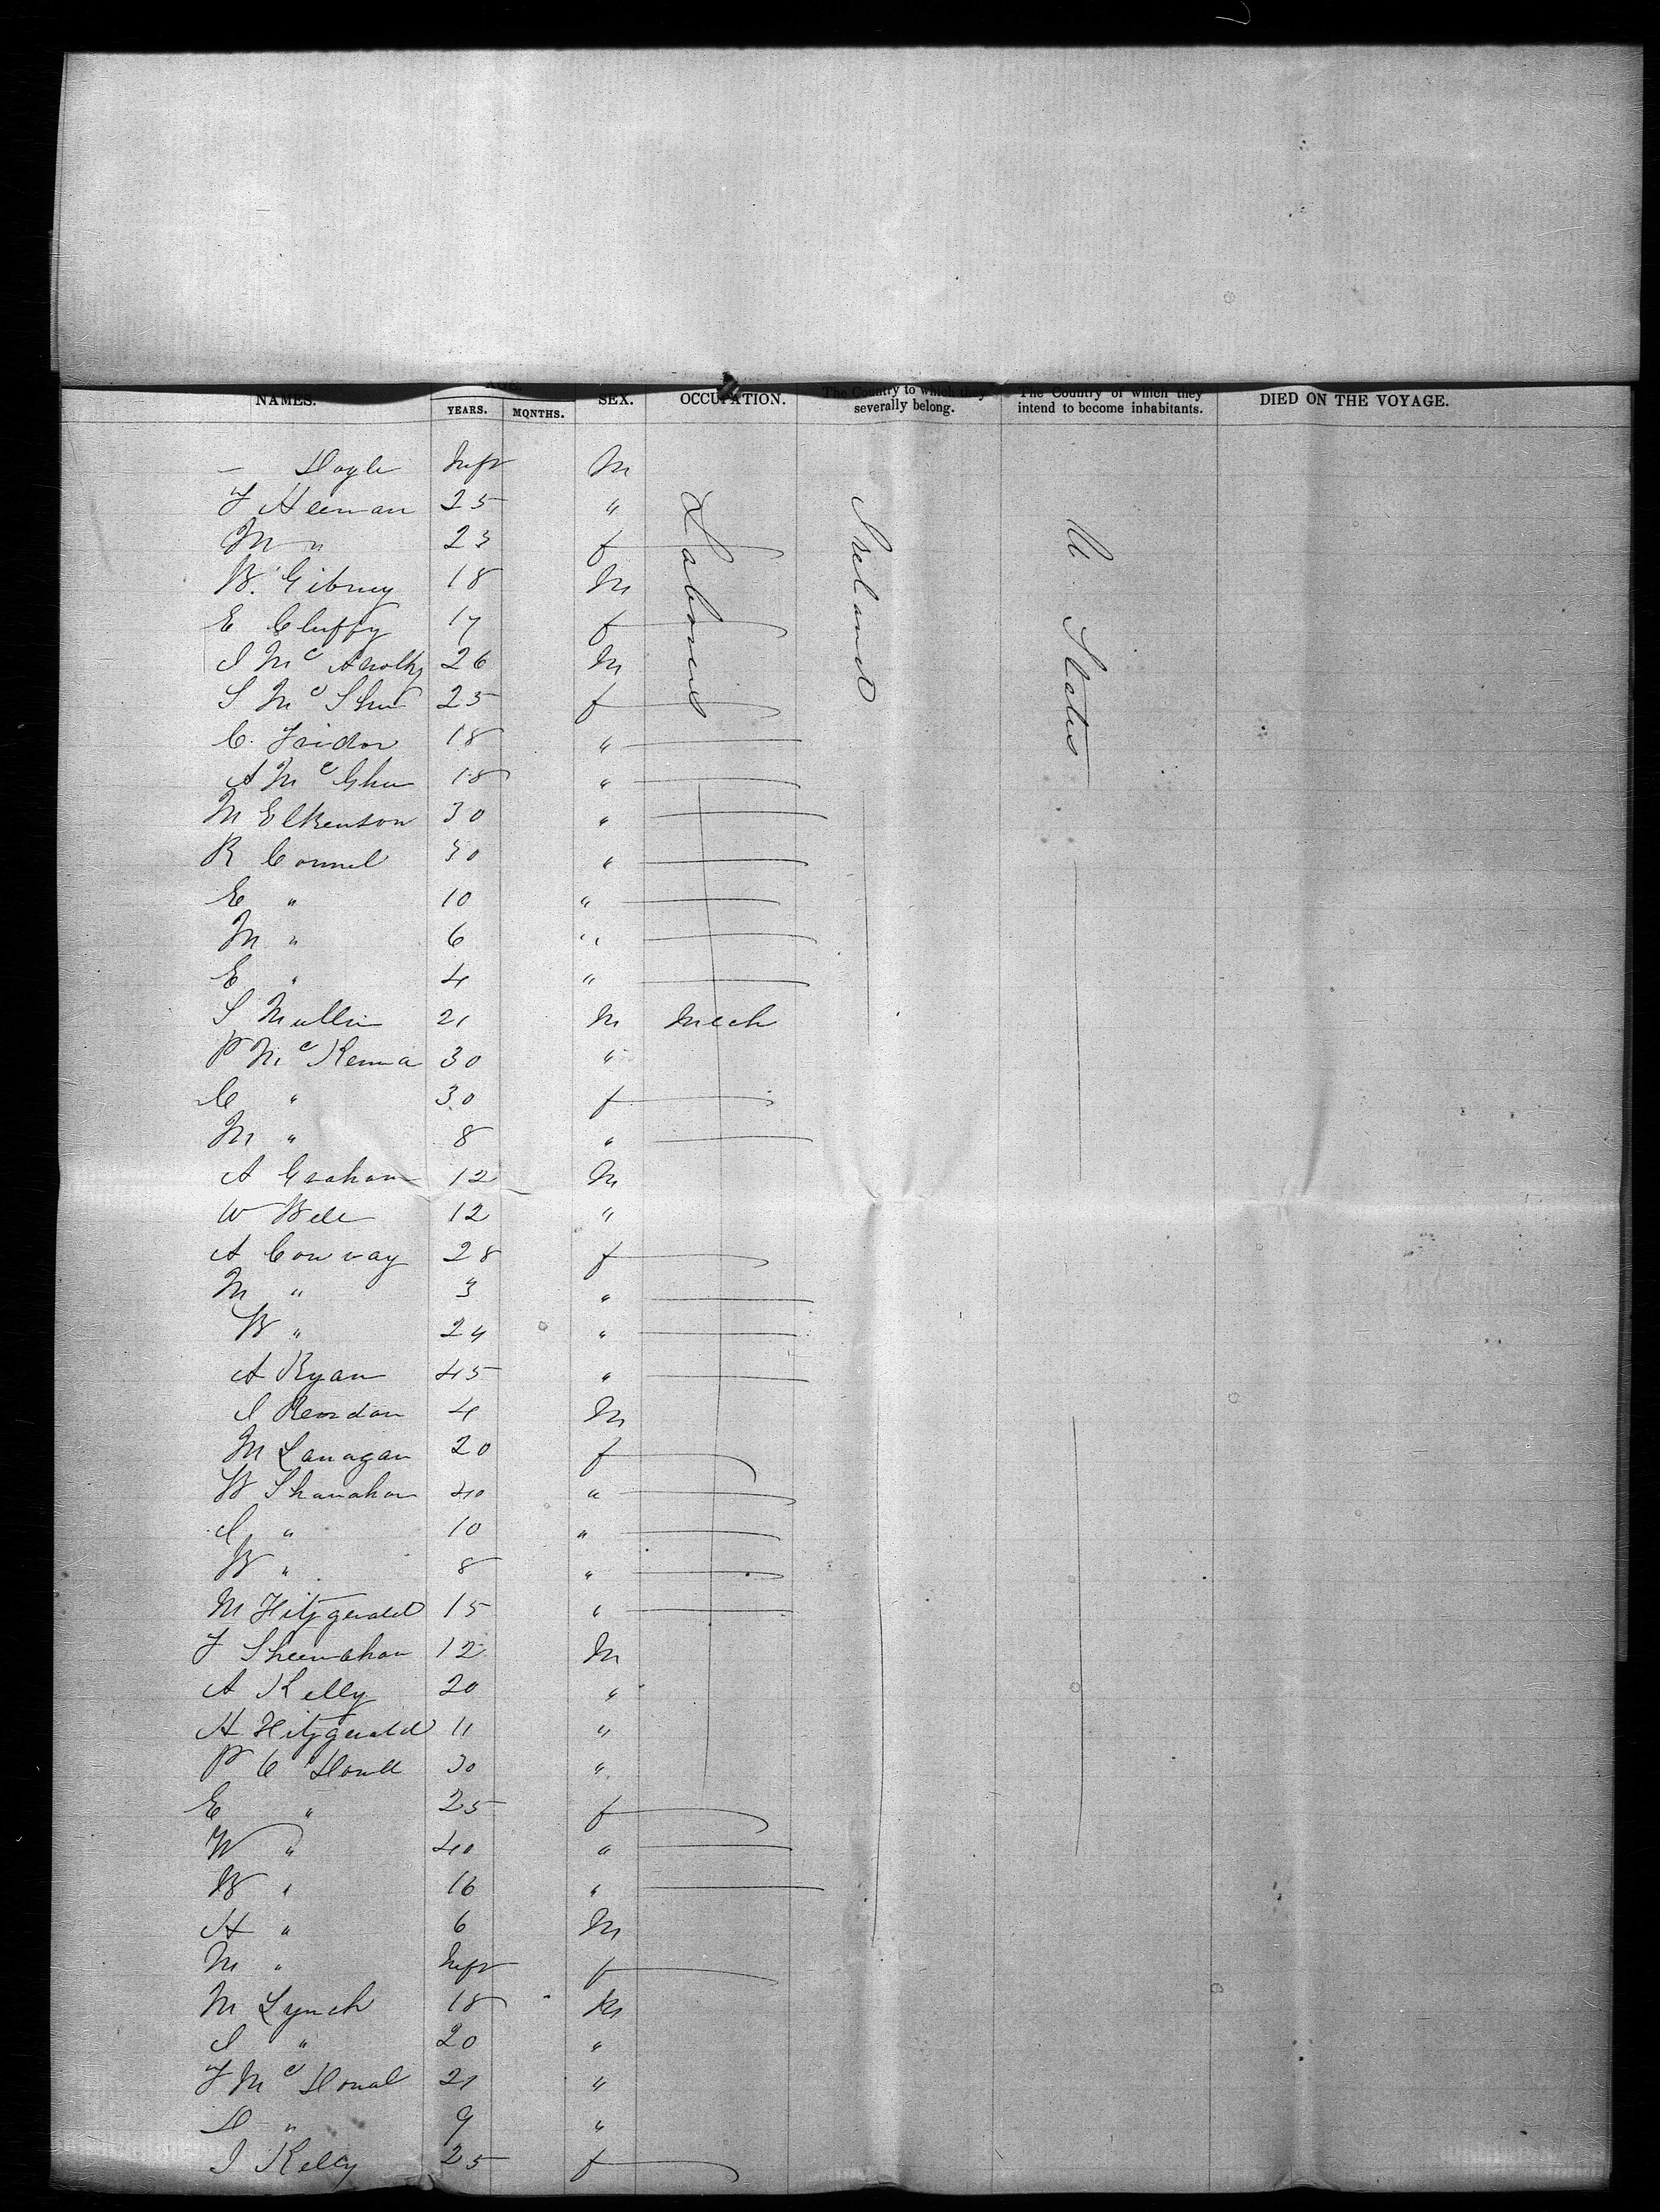 NAMES. AGE. SEX. OCCUPATION. The Country to which they The Country of which they DIED ON THE VOYAGE.
YEARS. MONTHS. severally belong. intend to become inhabitants.
— Doyle Inft M
J Heenan 25 " Labourers Ireland U. States
M " 23 f
B. Gibney 18 M
E Cluffy 17 f
J Mc 26 M
S Mc 25 f
C. 18 "
A Mc 18 "
M Elkenson 30 "
R Connel 30 "
E " 10 "
M " 6 "
E " 4 "
S Mullin 21 M Mech
P Mc Kenna 30 "
C " 30 f
M " 8 "
A Graham 12 M
W Bell 12 "
A Conway 28 f
M " 3 "
B " 24 "
A Ryan 45 "
J 4 M
M Lanagan 20 f
B Shanahan 40 "
J " 10 "
B " 8 "
M Fitzgerald 15 "
J Sheenahan 12 M
A Kelly 20 "
H Fitzgerald 11 "
P 30 "
E " 25 f
W " 40 "
B " 16 "
H " 6 M
M " Inft f
M Lynch 18 M
J " 20 "
J Mc Donal 21 "
D " 9 "
J Kelly 25 f